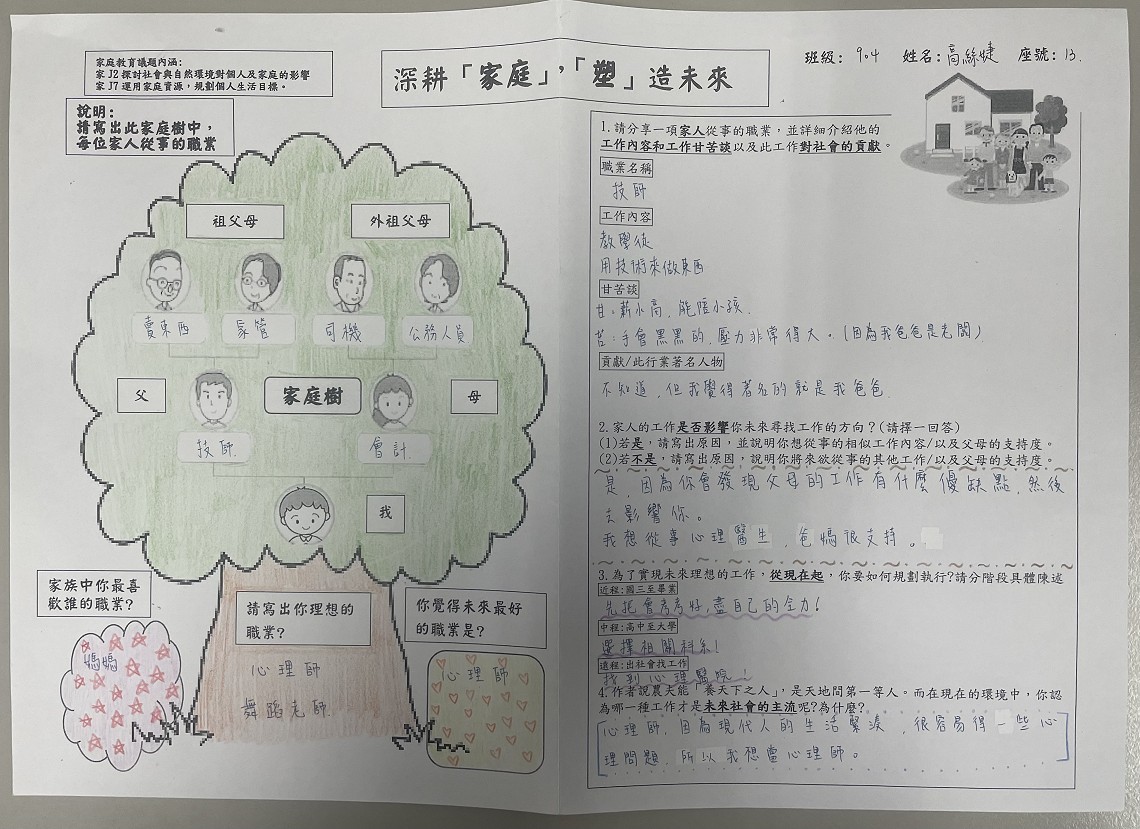 家庭教育議題內涵:
家 J2 探討社會與自然環境對個人及家庭的影響
家 J7 運用家庭資源，規劃個人生活目標。
說明:
請寫出此家庭樹中，
每位家人從事的職業
深耕「家庭」，「塑」造未來
班級: 904 姓名:高絲婕 座號: 13.
祖父母 外祖父母
賣東西 家管 司機 公務人員
父 家庭樹 母
技師. 會計.
我
家族中你最喜
歡誰的職業?
媽媽
請寫出你理想的
職業?
心理師
舞蹈老師.
你覺得未來最好
的職業是?
心理師
1.請分享一項家人從事的職業，並詳細介紹他的
工作內容和工作甘苦談以及此工作對社會的貢獻。
職業名稱
技師
工作內容
教學徒
用技術來做東西
甘苦談
甘:薪水高,能陪小孩.
苦:手會黑黑的,壓力非常得大。(因為我爸爸是老闆)
貢獻/此行業著名人物
不知道,但我覺得著名的就是我爸爸.
2.家人的工作是否影響你未來尋找工作的方向?(請擇一回答)
(1)若是，請寫出原因，並說明你想從事的相似工作內容/以及父母的支持度。
(2)若不是，請寫出原因，說明你將來欲從事的其他工作/以及父母的支持度。
是,因為你會發現父母的工作有什麼優缺點,然後
去影響你。
我想從事心理醫生,爸媽很支持。
3.為了實現未來理想的工作，從現在起，你要如何規劃執行?請分階段具體陳述
近程:國三至畢業
先把會考考好,盡自己的全力!
中程:高中至大學
選擇相關科系!
遠程:出社會找工作
找到心理醫院!
4.作者說農夫能「養天下之人」，是天地間第一等人。而在現在的環境中，你認
為哪一種工作才是未來社會的主流呢?為什麼?
心理師,因為現代人的生活緊湊,很容易得一些心
理問題,所以我想當心理師。